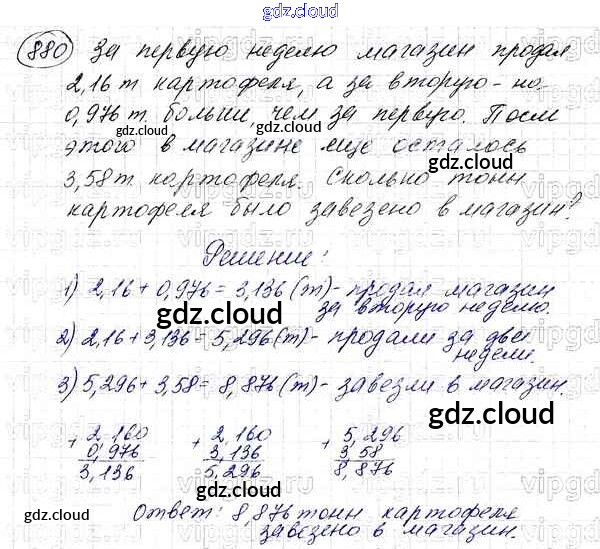 gdz.cloud
880 За первую неделю магазин продал
2,16 т картофеля, а за вторую - на
0,976 т. больши, чем за первую. Посл
gdz.cloud
этого в магазине еще осталось
gdz.cloud
3,58 т картофеля. Сколько тонн
gdz.cloud
картофеля было завезено в магазин?
Решение:
1) 2,16 + 0,976 = 3,136 (т) - продал магазин
за вторую неделю.
gdz.cloud
gdz.cloud
2) 2,16 + 3,136 = 5,296 (т) - продали за две
недели.
3) 5,296 + 3,58 = 8,876 (т) - завезли в магазин.
gdz.cloud
+ 2,160 + 2,160 + 5,296
0,976 3,136 3,58
3,136 5,296 8,876
gdz.cloud
Ответ: 8,876 тонн картофеля
gdz.cloud
завезено в магазин.
gdz.cloud